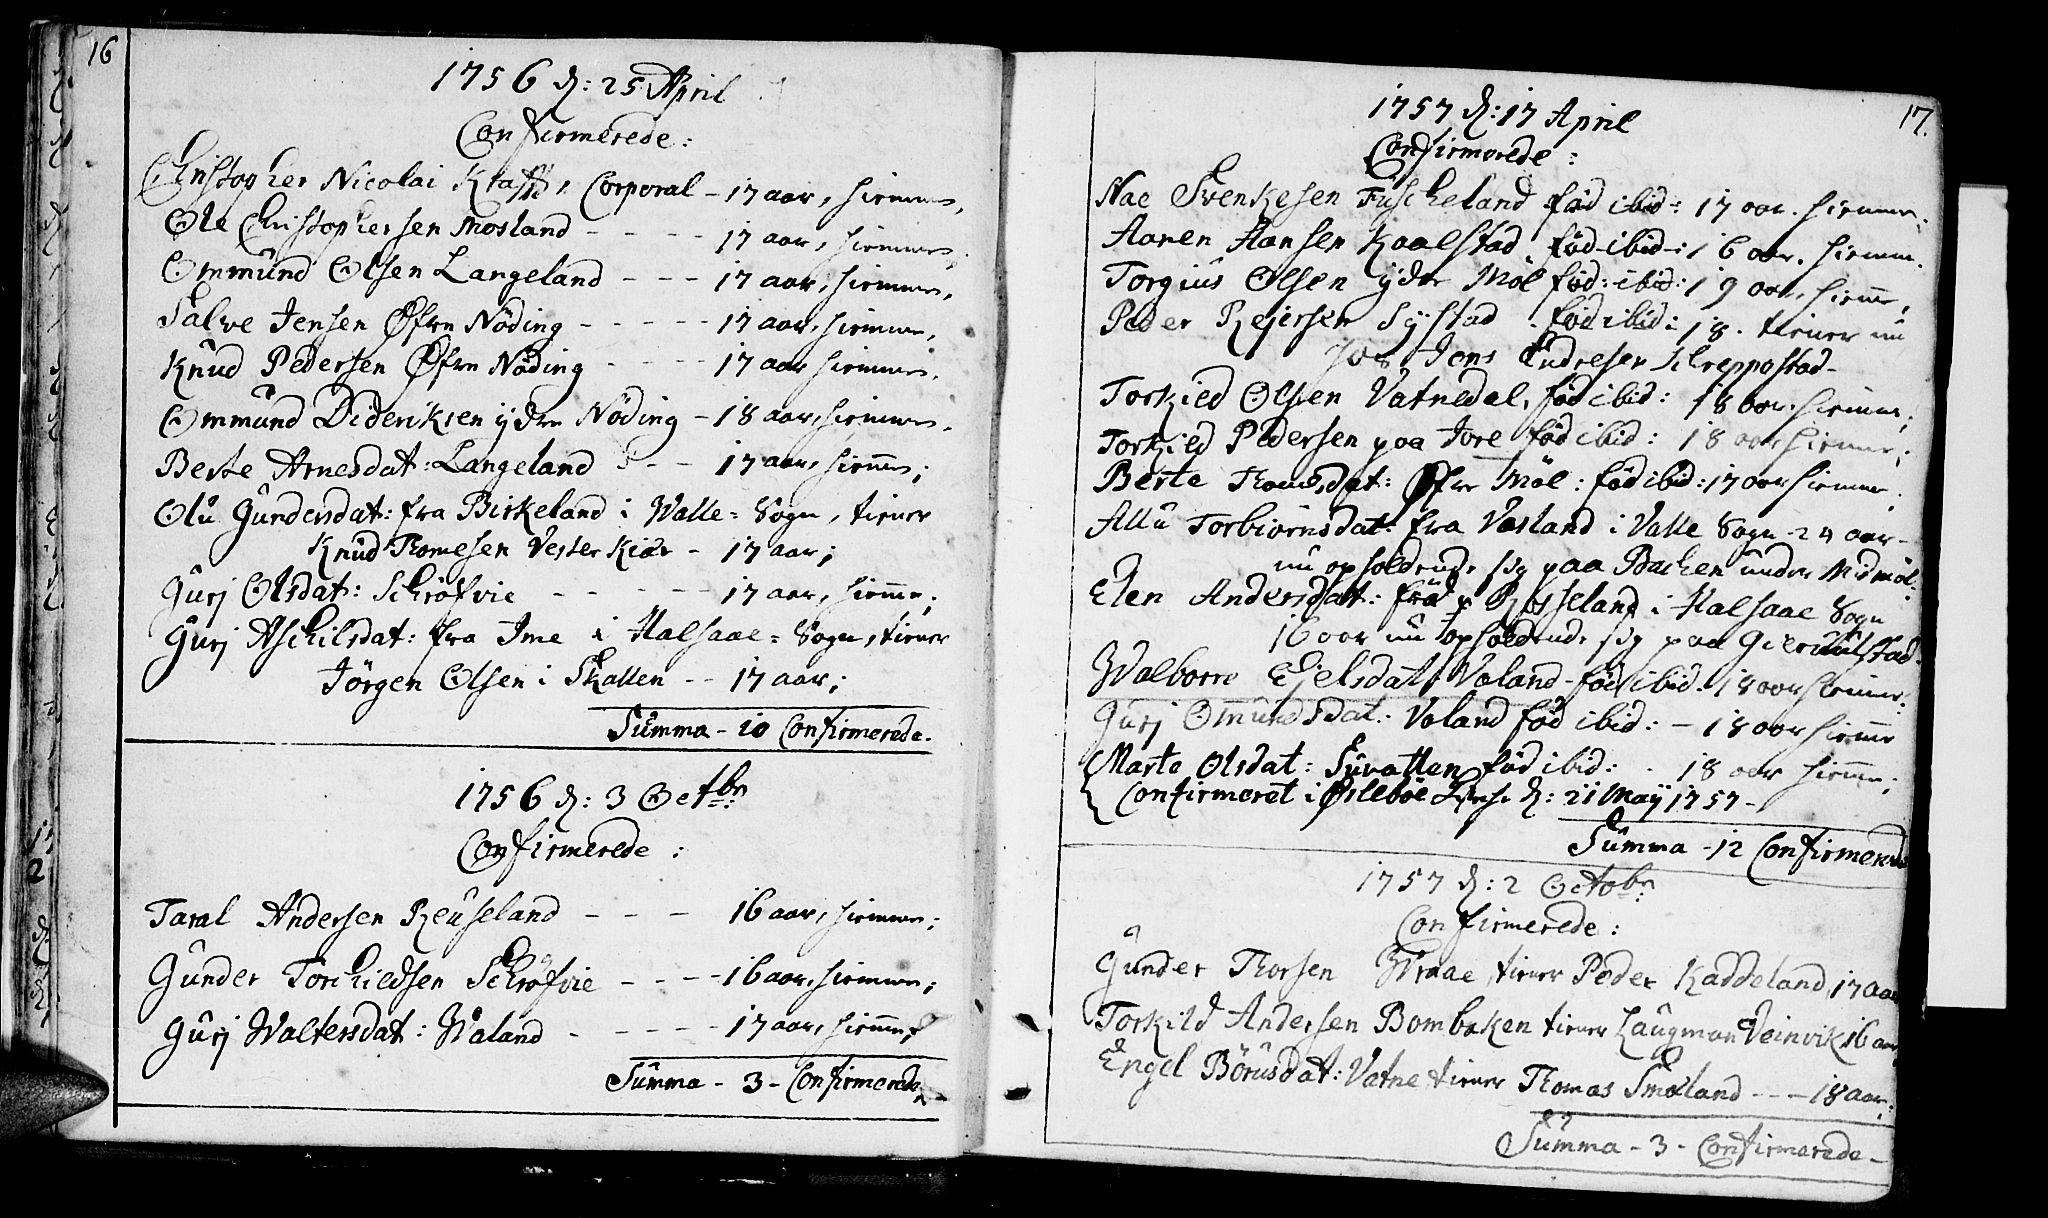 16
1756 d: 25 April
Confirmerede:
Christopher Nicolai Krafft, Corporal - 17 aar, hiemme,
Ole Christophersen Mosland - - - - - 17 aar, hiemme,
Ommund Olsen Langeland - - - 17 aar, hiemme,
Salve Jensen Øfre Nöding - - - - - 17 aar, hiemme,
Knud Pedersen Øfre Nöding - - - - 17 aar hiemme,
Ommund Dideriksen ydre Nöding - 18 aar, hiemme,
Berte Arnesdat: Langeland - - 17 aar, hiem̅e;
Olu Gundersdat: fra Birkeland i Walle = Sogn, tiener
Knud Thomesen Vester Kiær - 17 aar;
Gurj Olsdat: Schröfvie - - - - - 17 aar, hiem̅e;
Gurj Aschilsdat: fra Ime i Halsaae = Sogn, tiener
Jörgen Olsen i Skallen - - 17 aar;
Summa - 10 Confirmerede.
1756 d: 3 Octbr:
Confirmerede:
Taral Andersen Reuseland - - - 16 aar, hiemme;
Gunder Torchildsen Schröfvie - - - - 16 aar, hiemme;
Gurj Waltersdat: Waland - - - - - 17 aar, hiem̅e;
Summa - 3 - Confirmerede
17.
1757 d: 17 April
Confirmerede:
Aae Svenkesen Fuscheland fød ibid: 17 aar. hiemme.
Aanen Hansen Kaalstad fød ibid: 16 aar. hiemm.
Torgius Olsen ydre Möl fød: ibid: 19 aar, hiem̅e,
Peder Rejersen Systad. fød ibid: 18. tiener nu
hos Jens Endresen Schreppestad -
Torkied Olsen Vatnedal, fød ibid: 18 aar. hiemme;
Torkild Pedersen paa Jore fød ibid: 18 aar hiemme;
Berte Thomesdat: Øfre Möl: fød ibid: 17 aar hiemme.
Allu Torbiörnsdat: fra Vasland i Valle Sogn - 24 aar -
nu opholdende sig paa Bachen under Midmöl.
Elen Andersdat: fra Røsseland i Halsaae Sogn
16 aar nu opholdende sig paa
Walborre Ejelsdat: Voland - fød ibid. 18 aar hiemme.
Gurj Omundsdat: Voland fød ibid: - 18 aar hiem̅e
Marte Olsdat: Suvatten fød ibid: - 18 aar hiem̅e;
Confirmeret i Øslebøe Kirche d: 21 Maÿ 1757 -
Summa - 12 Confirmerede
1757 d: 2 Octobr:
Confirmerede:
Gunder Thorsen Wraae, tiener Peder Kaddeland, 17 aar
Torkild Andersen Bombaken tiener Laugman Veinvik 16 aar
Engel Börusdat: Vatne tiener Thomas Smoland - - - 18 aar;
Summa - 3 - Confirmerede -